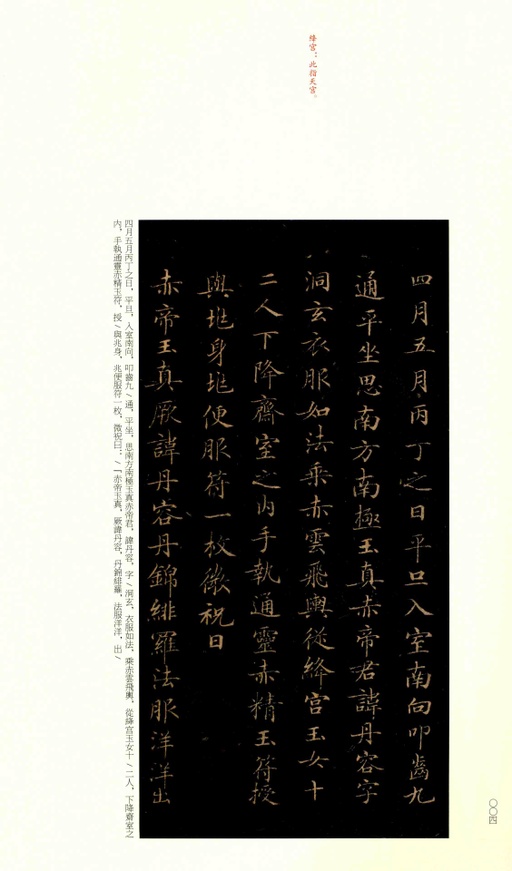 絳宮：此指天宮。
四月五月丙丁之日平旦入室南向叩齒九
通平坐思南方南極玉真赤帝君諱丹容字
洞玄衣服如法乘赤雲飛輿從絳宮玉女十
二人下降齋室之内手執通靈赤精玉符授
與地身地便服符一枚微祝曰
赤帝玉真厥諱丹容丹錦緋羅法服洋洋出
四月五月丙丁之日，平旦，入室南向，叩齒九\通，平坐，思南方南極玉真赤帝君，諱丹容，字\洞玄，衣服如法，乘赤雲飛輿，從絳宮玉女十\二人，下降齋室之
内，手執通靈赤精玉符，授\與兆身，兆便服符一枚，微祝曰：\「赤帝玉真，厥諱丹容，丹錦緋羅，法服洋洋，出\
〇〇四